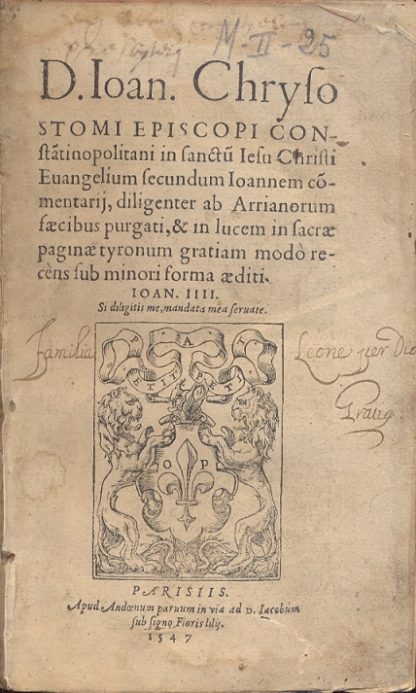 M-II-25
D. Ioan. Chryſo
STOMI EPISCOPI CON-
ſtãtinopolitani in ſanctũ Ieſu Chriſti
Euangelium ſecundum Ioannem cõ-
mentarij, diligenter ab Arrianorum
fæcibus purgati, & in lucem in ſacræ
paginæ tyronum gratiam modò re-
cèns ſub minori forma æditi.
IOAN. IIII.
Si diligitis me, mandata mea ſeruate.
Familia
Leone per Dio
Gratia
O P
PARISIIS.
Apud Audoënum paruum in via ad D. Iacobum
ſub ſigno Floris lilij.
1547